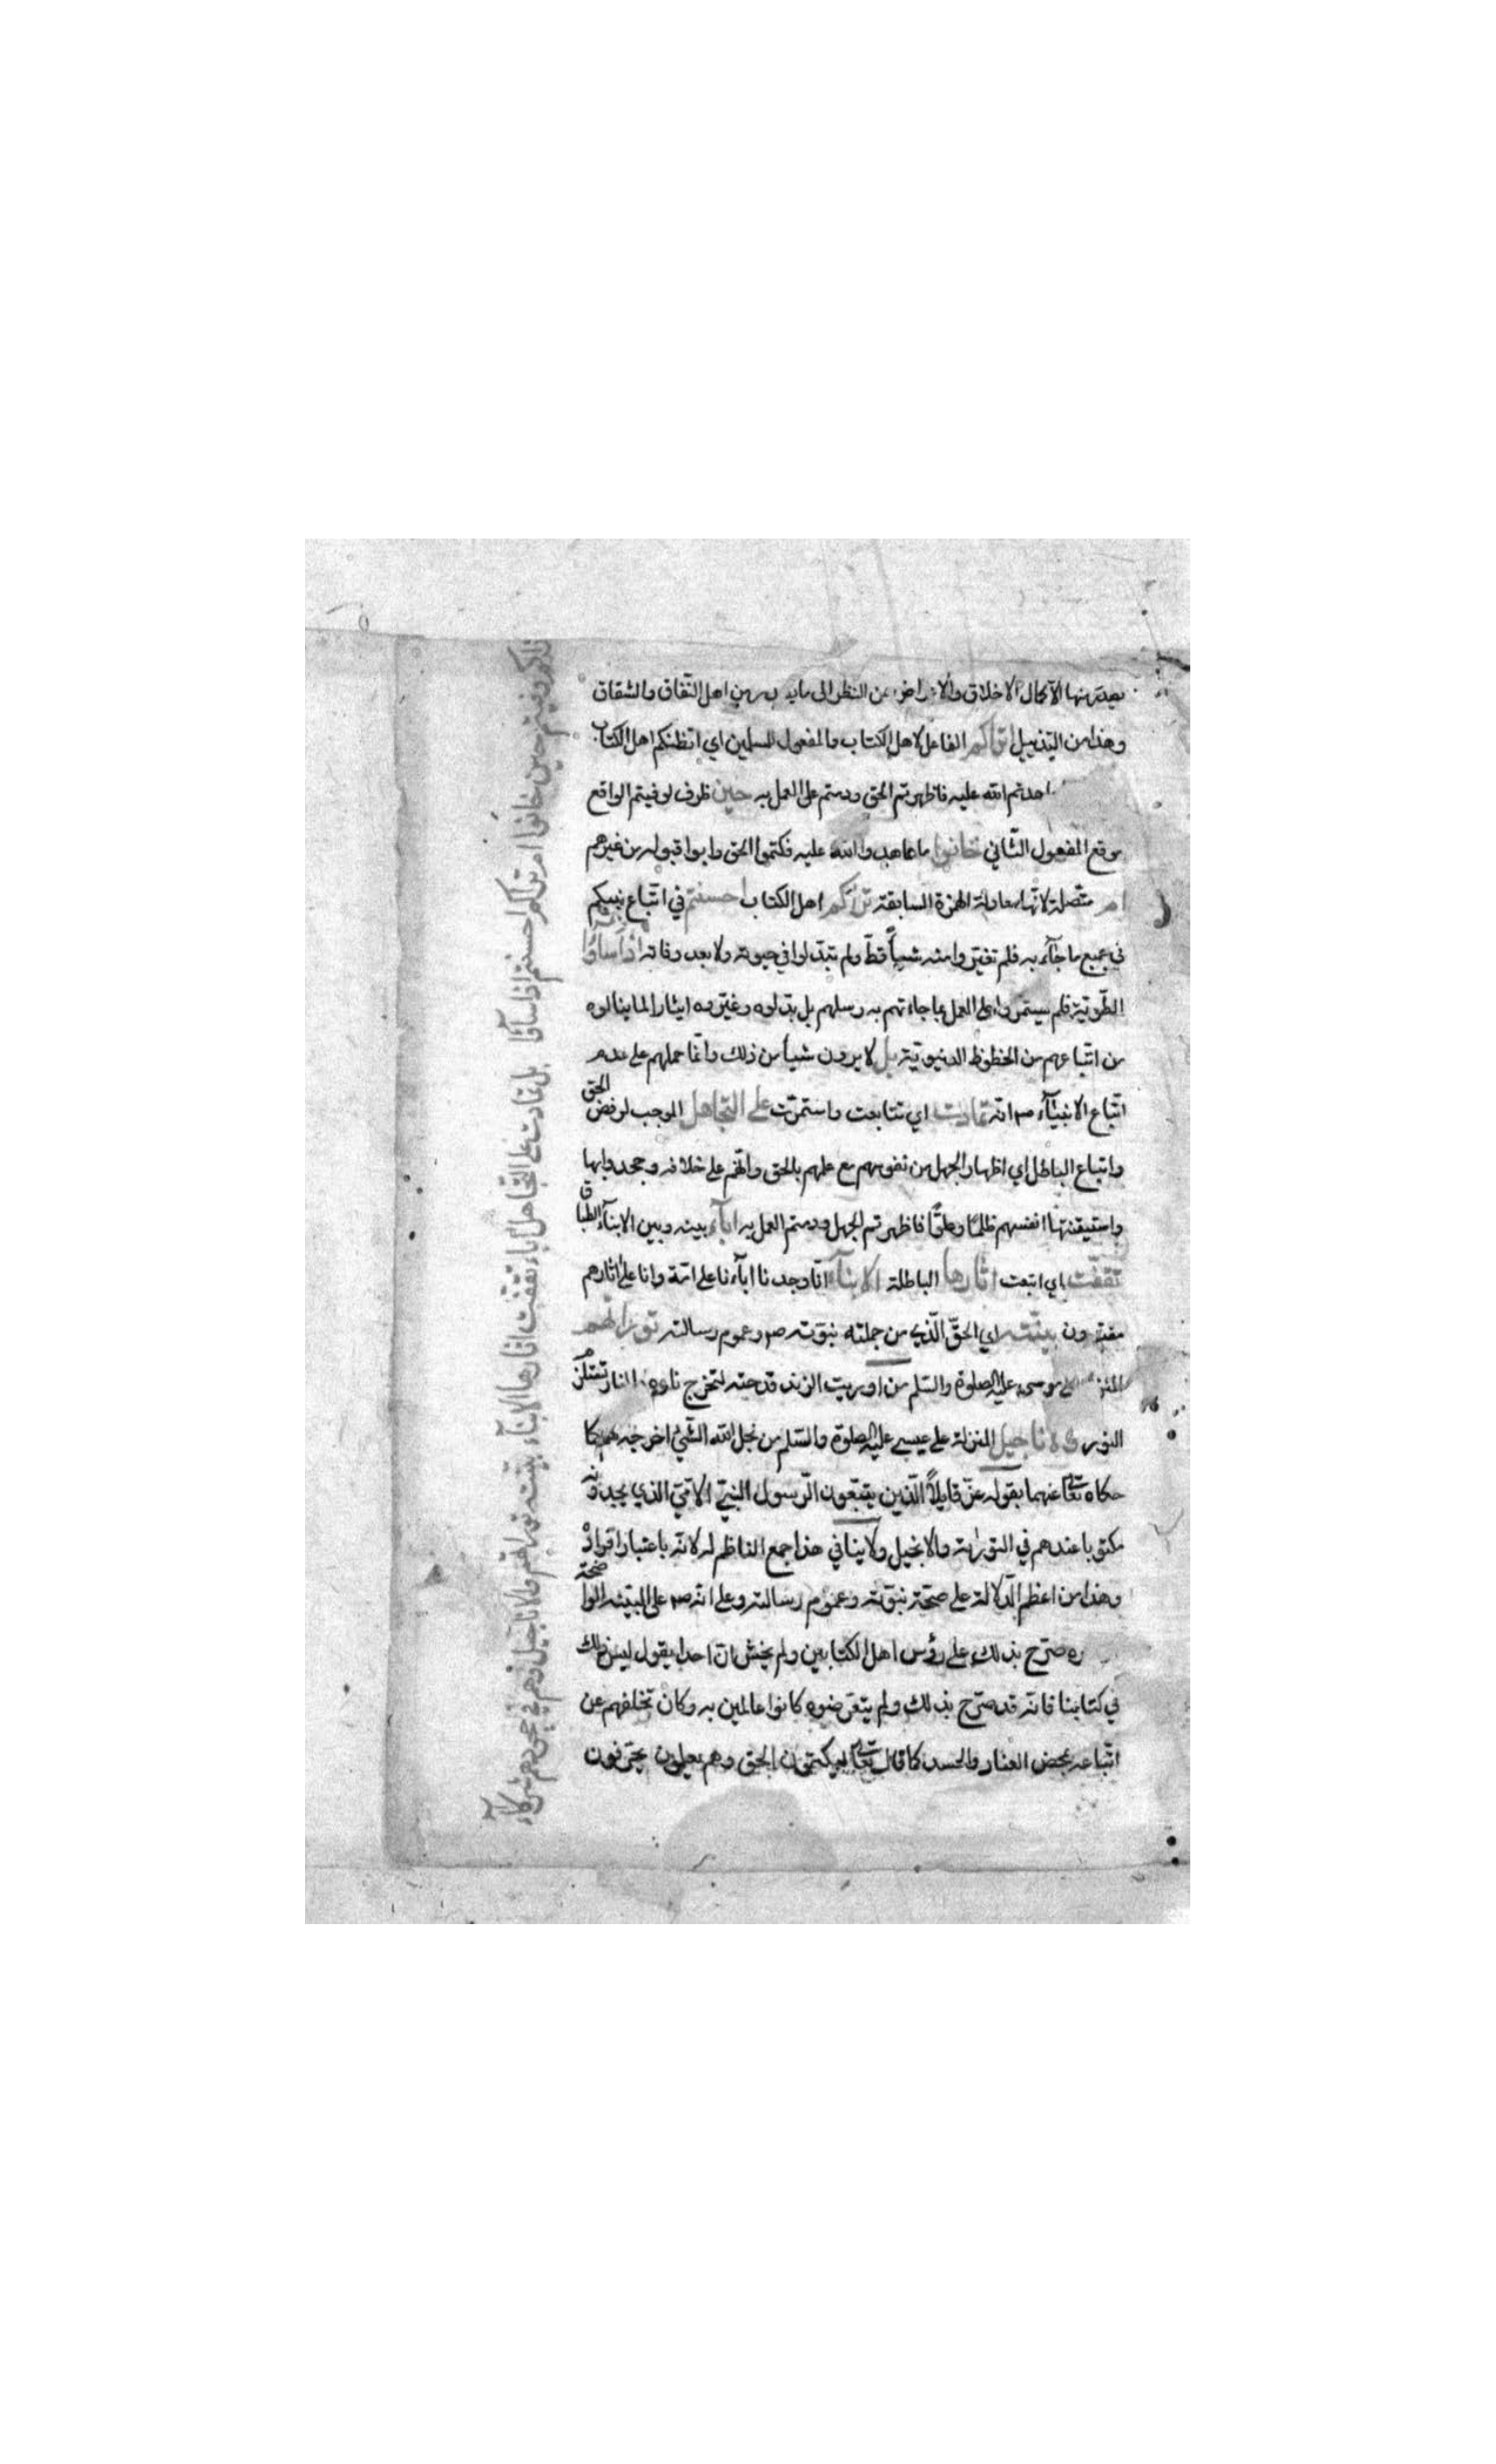 يصدر منها الا كمال الاخلاق والاعراض عن النظر الى ما يد من اهل النفاق والشقاق
وهذا من التذييل اتراكم الفاعل لاهل الكتاب والمفعول للمسلمين اي اتظنكم اهل الكتاب
الله عليه فاظهرتم الحق ودمتم على العمل به حين ظرف لوفيتم الواقع
موقع المفعول الثاني خانوا ما عاهدوا الله عليه فكتموا الحق وابوا قبوله من غيرهم
ام متصلة لانها معادلة الهمزة السابقة تراكم اهل الكتاب احسنتم في اتباع نبيكم
في جميع ما جآء به فلم تغيروا منه شيأ قط ولم تبدلوا في حيوته ولا بعد وفاته اذ اساؤا
الطوية فلم يستمروا على العمل بما جاءتهم به رسلهم بل بدلوه وغيروه ايثارا لما ينالوه
من اتباعهم من الحظوظ الدنيوية بل لا يرون شيأ من ذلك وانما حملهم على عدم
اتباع الانبيآء انه تمادت اي تتابعت واستمرت على التجاهل الموجب لرفض الحق
واتباع الباطل اي اظهار الجهل من نفوسهم مع علمهم بالحق وانهم على خلافه وجحدوا بها
واستيقنتها انفسهم ظلما وعلوا فاظهرتم الجهل ودمتم العمل به ابآء بينه وبين الابنآء الطباق
تقفت اي اتبعت اثارها الباطلة الابنآء انا وجدنا ابآءنا على امة وانا على اثارهم
مقتدون بينته اي الحق الذي من جملته نبوته ص وعموم رسالته توراتهم
موسى عليه الصلوة والسلم من اوريت الزند قدحته لتخرج ناره
الاناجيل المنزلة على عيسى عليه الصلوة والسلم من نجل الله الشيئ اخرجه كما
حكاه تعالى عنهما بقوله عز قايلاً الذين يتبعون الرسول النبي الامي الذي يجدونه
مكتوبا عندهم في التورٰية والانجيل ولا ينافي هذا جمع الناظم له لانه باعتبار افراد
وهذا من اعظم الدلالة على صحة نبوته وعموم رسالته وعلى انه ص على البينة الواضحة
صرح بذلك على رؤس اهل الكتابين ولم يخش ان احدا يقول ليس ذلك
في كتابنا فانه قد صرح بذلك ولم يتعرضوه كانوا عالمين به وكان تخلفهم عن
اتباعه بمحض العناد والحسد كما قال تعالى ليكتمون الحق وهم يعلمون يحرفون
وفيتم حين خانوا ام تراكم احسنتم اذ اساؤا بل تمادت على التجاهل اباء تقفت اثارها الابناء بينته توراتهم والاناجيل وهم في جحودهم شركاء